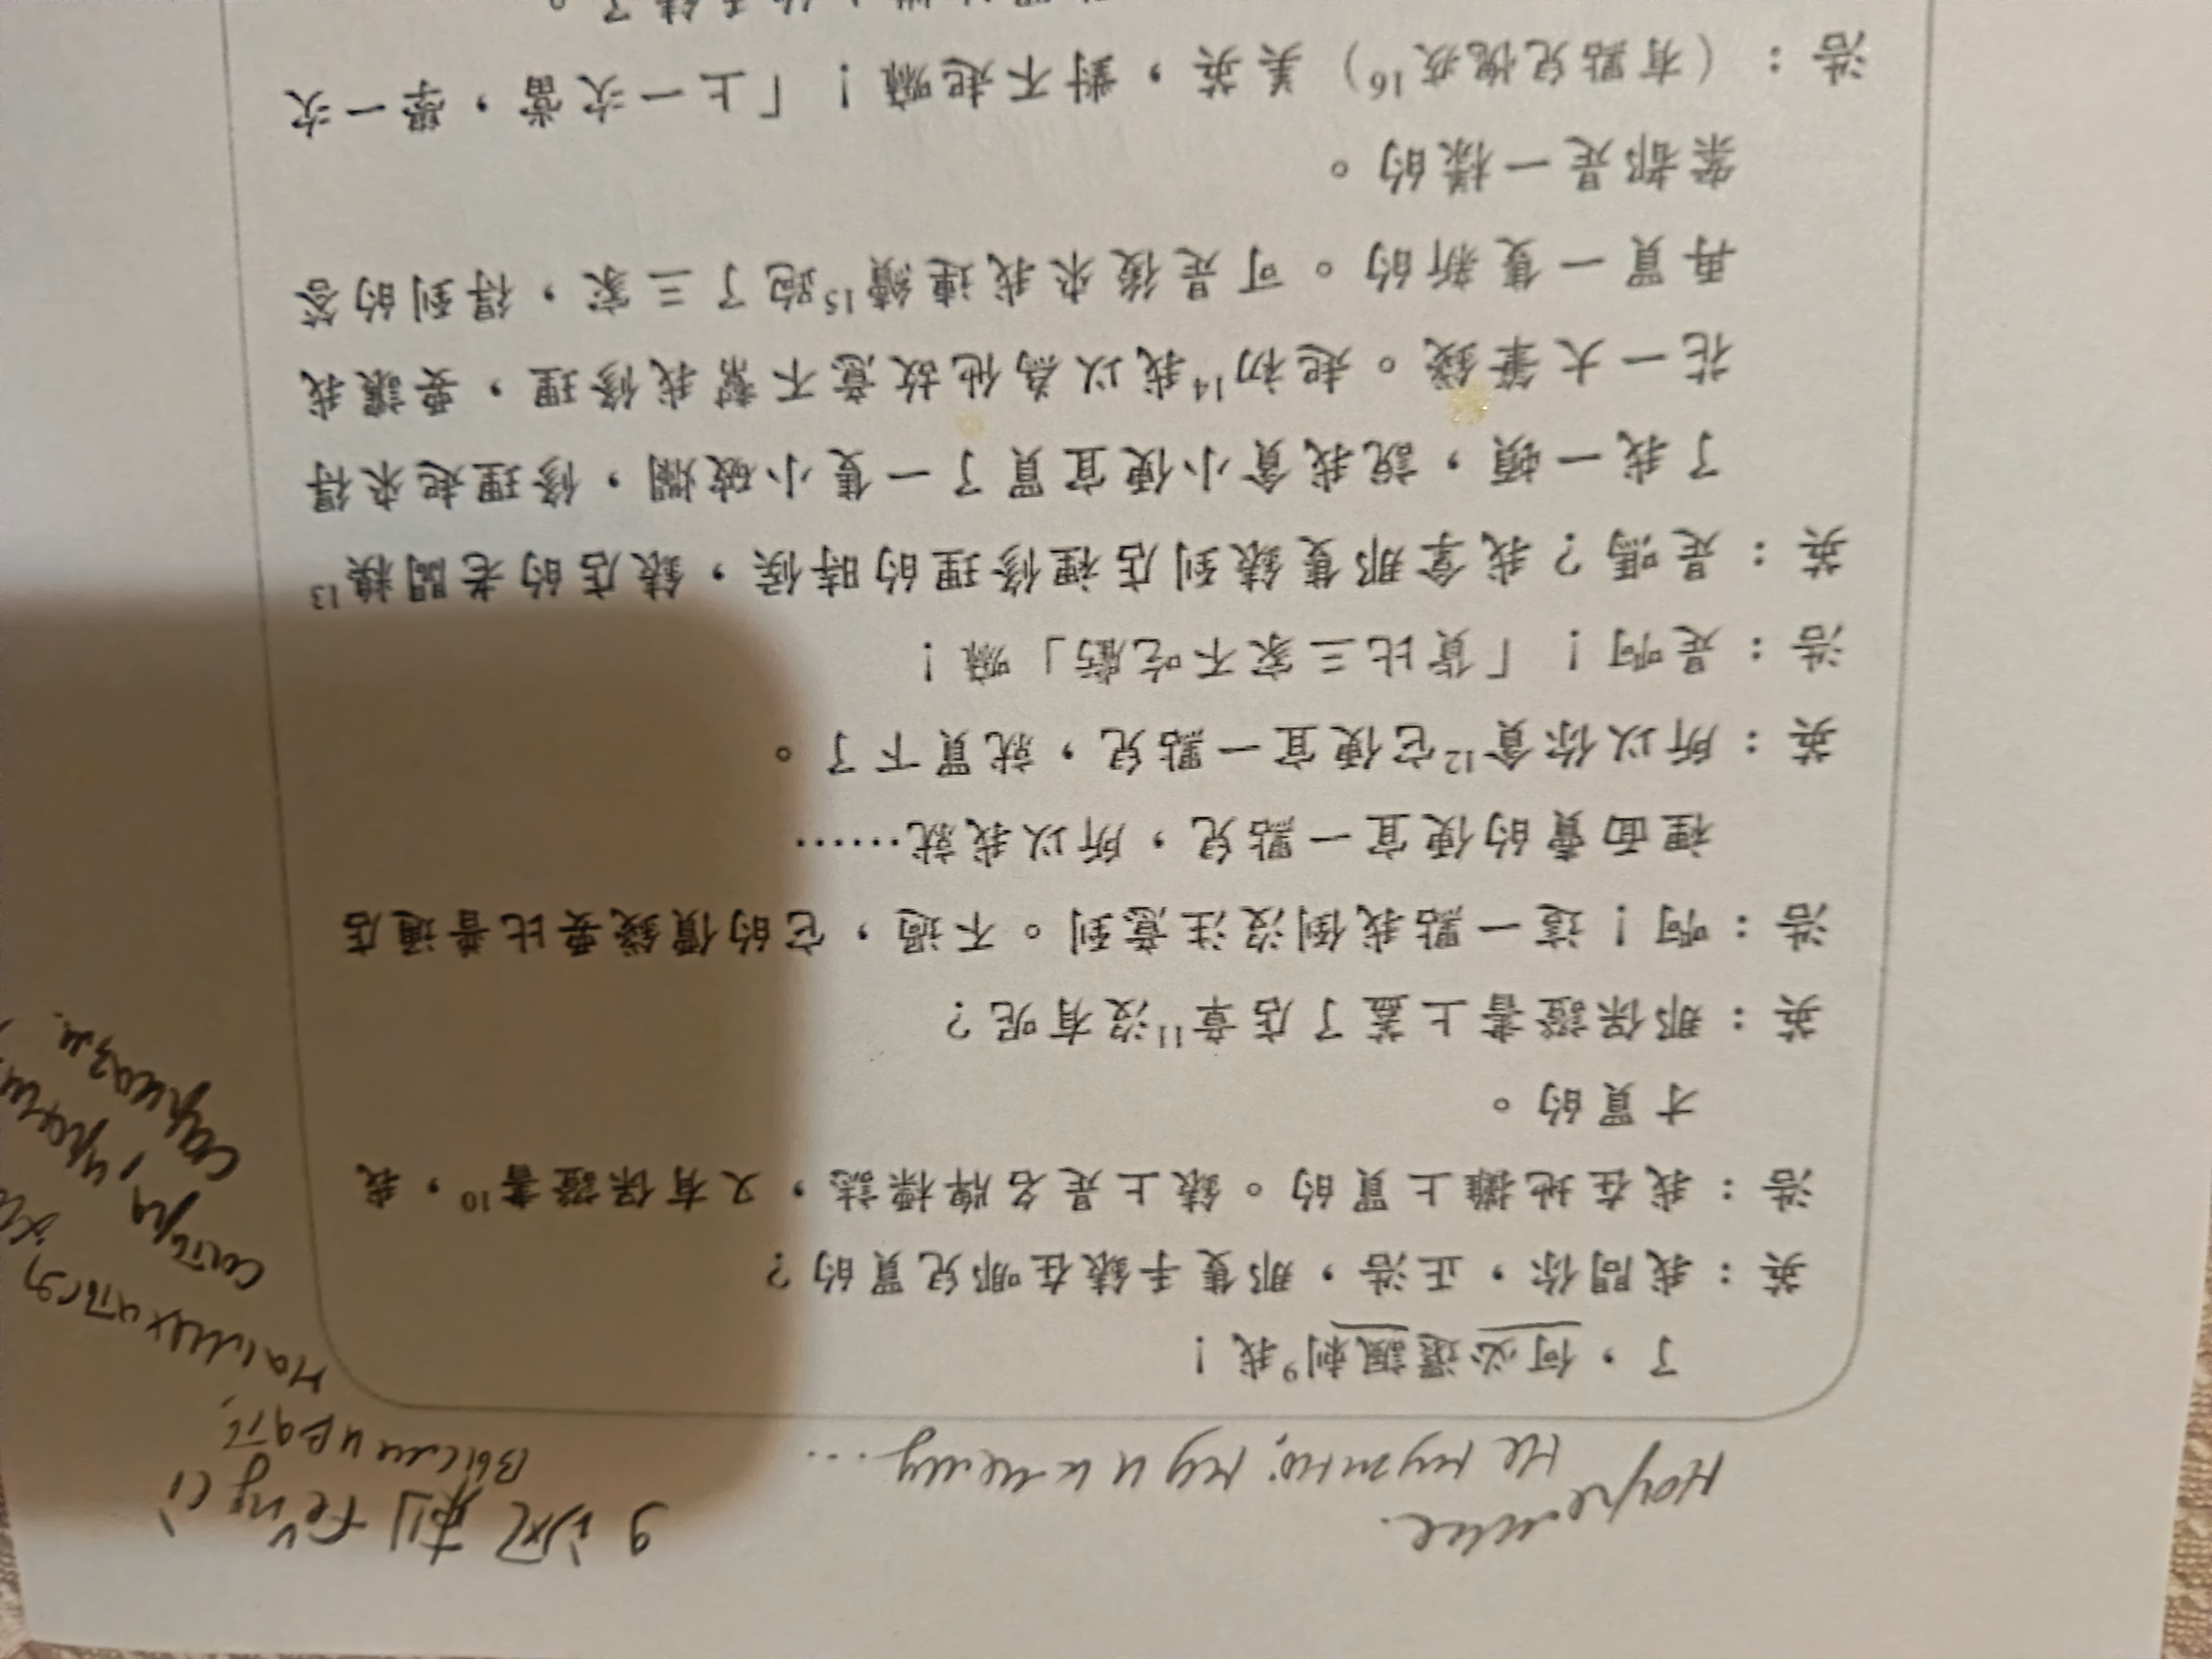 не нужно; ну и к чему ...
9 讽刺 fěng cì
высмеивать,
сатира,
сарказм.
了，何必還諷刺9我！
英：我問你，正浩，那隻手錶在哪兒買的？
浩：我在地攤上買的。錶上是名牌標誌，又有保證書10，我
才買的。
英：那保證書上蓋了店章11沒有呢？
浩：啊！這一點我倒沒注意到。不過，它的價錢要比普通店
裡面賣的便宜一點兒，所以我就……
英：所以你貪12它便宜一點兒，就買下了。
浩：是啊！「貨比三家不吃虧」嘛！
英：是嗎？我拿那隻錶到店裡修理的時候，錶店的老闆糗13
了我一頓，說我貪小便宜買了一隻小破爛，修理起來得
花一大筆錢。起初14我以為他故意不幫我修理，要讓我
再買一隻新的。可是後來我連續15跑了三家，得到的答
案都是一樣的。
浩：（有點兒愧疚16）美英，對不起嘛！「上一次當，學一次